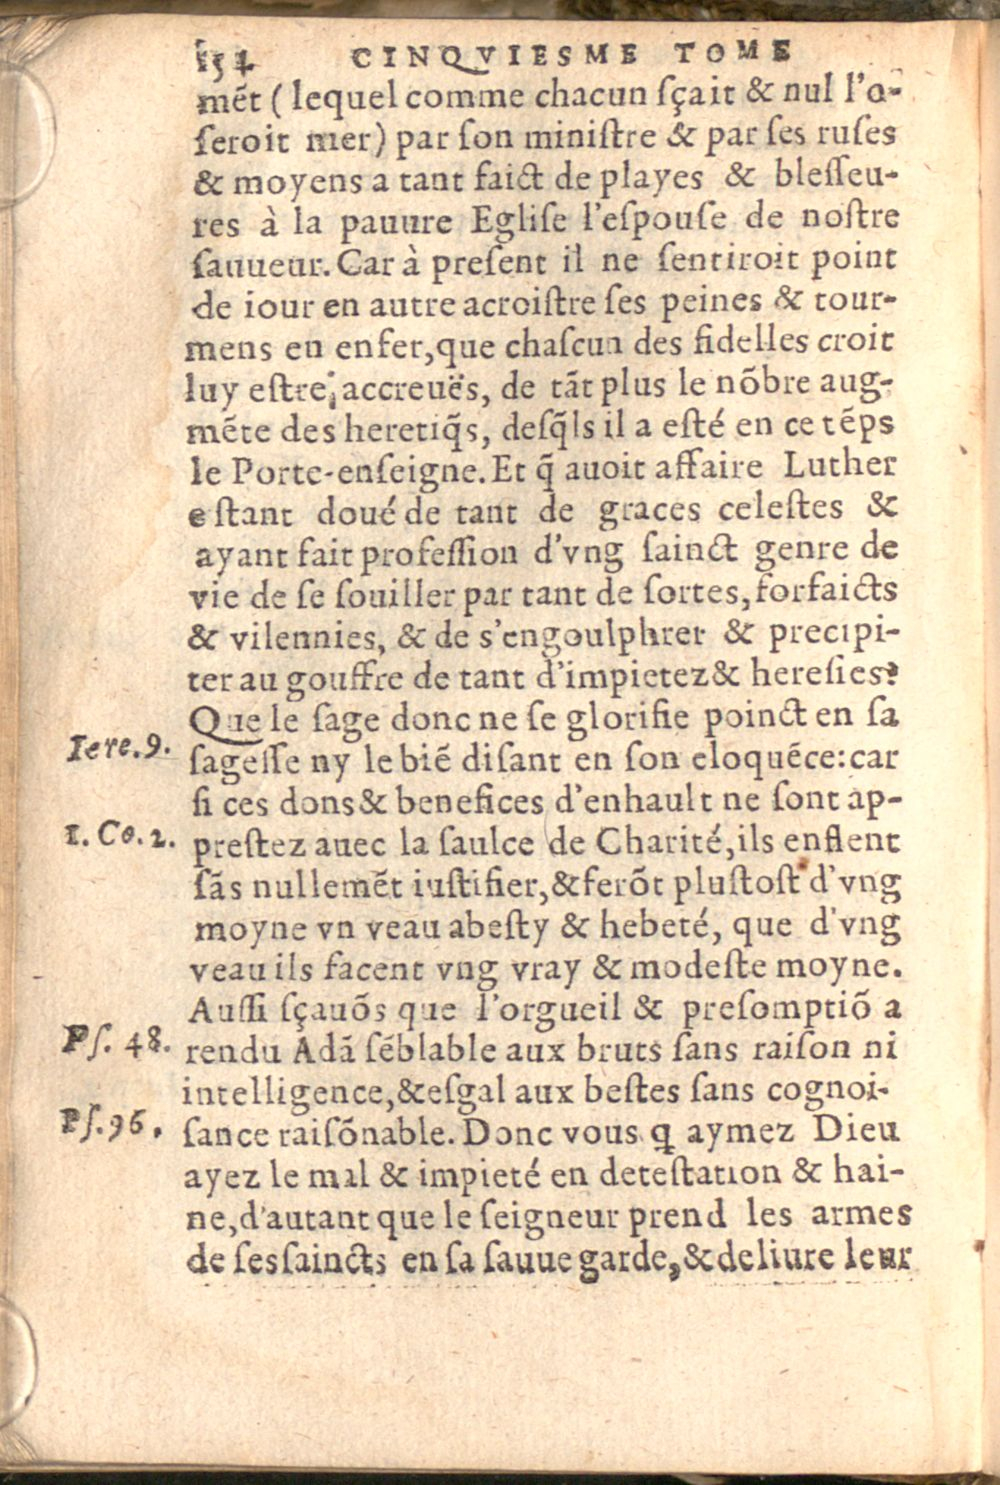 154 CINQVIESME TOME
mẽt (lequel comme chacun sçait & nul l'o-
seroit nier) par son ministre & par ses ruses
& moyens a tant faict de playes & blesseu-
res à la pauure Eglise l'espouse de nostre
sauueur. Car à present il ne sentiroit point
de iour en autre acroistre ses peines & tour-
mens en enfer, que chascun des fidelles croit
luy estre accreuës, de tãt plus le nõbre aug-
mẽte des heretiq̃s, desq̃ls il a esté en ce tẽps
le Porte-enseigne. Et q̃ auoit affaire Luther
estant doué de tant de graces celestes &
ayant fait profession d'vng sainct genre de
vie de se souiller par tant de sortes, forfaicts
& vilennies, & de s'engoulphrer & precipi-
ter au gouffre de tant d'impietez & heresies?
Que le sage donc ne se glorifie poinct en sa
Iere. 9.
sagesse ny le biẽ disant en son eloquẽce: car
si ces dons & benefices d'enhault ne sont ap-
1. Co. 2.
prestez auec la saulce de Charité, ils enflent
sãs nullemẽt iustifier, & ferõt plustost d'vng
moyne vn veau abesty & hebeté, que d'vng
veau ils facent vng vray & modeste moyne.
Aussi sçauõs que l'orgueil & presomptiõ a
Ps. 48.
rendu Adã sẽblable aux bruts sans raison ni
intelligence, & esgal aux bestes sans cognoi-
Ps. 96.
sance raisõnable. Donc vous q aymez Dieu
ayez le mal & impieté en detestation & hai-
ne, d'autant que le seigneur prend les armes
de ses saincts en sa sauue garde, & deliure leur